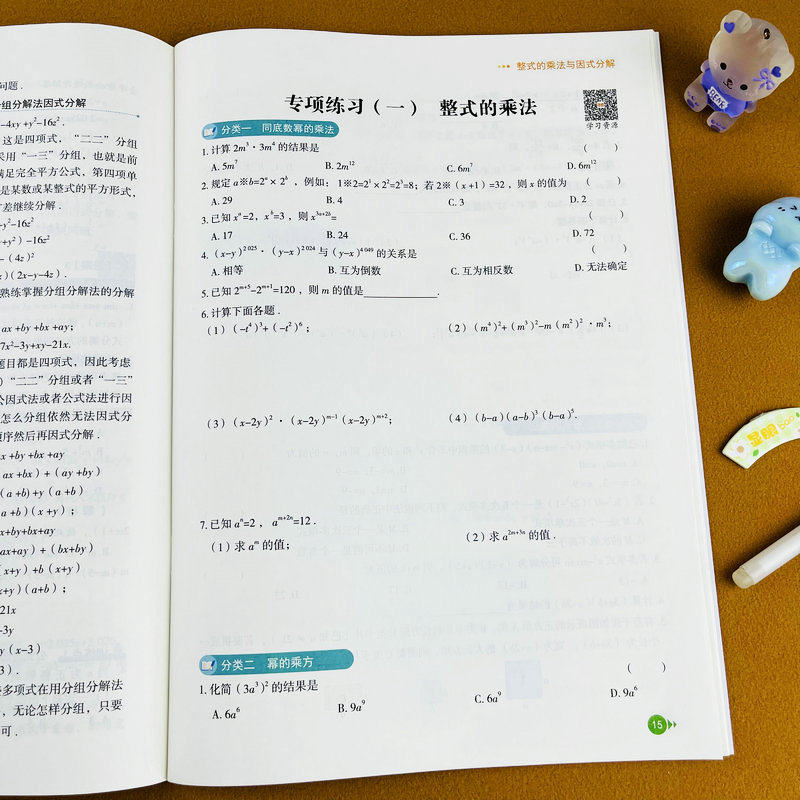 问题.
组分解法因式分解
-4xy+y²-16z².
这是四项式，“二二”分组
采用“一三”分组，也就是前
满足完全平方公式，第四项单
是某数或某整式的平方形式，
差继续分解.
y²-16z²
+y²）-16z²
-（4z）²
)（2x-y-4z）.
熟练掌握分组分解法的分解
ax+by+bx+ay；
7x²-3y+xy-21x.
题目都是四项式，因此考虑
）“二二”分组或者“一三”
公因式法或者公式法进行因
怎么分组依然无法因式分
顺序然后再因式分解.
x+by+bx+ay
ax+bx）+（ay+by）
（a+b)+y（a+b）
a+b)（x+y）；
x+by+bx+ay
ax+ay）+（bx+by）
（x+y）+b（x+y）
x+y）（a+b）；
21x
-3y
y（x-3）
3）.
多项式在用分组分解法
，无论怎样分组，只要
可.
整式的乘法与因式分解
专项练习（一） 整式的乘法
学习资源
分类一 同底数幂的乘法
1.计算 2m³·3m⁴ 的结果是 （ ）
A. 5m⁷ B. 2m¹² C. 6m⁷ D. 6m¹²
2.规定 a※b=2ᵃ×2ᵇ，例如：1※2=2¹×2²=2³=8；若2※（x+1）=32，则 x 的值为 （ ）
A. 29 B. 4 C. 3 D. 2
3.已知 xᵃ=2，xᵇ=3，则 x³ᵃ⁺²ᵇ= （ ）
A. 17 B. 24 C. 36 D. 72
4.（x-y）²⁰²⁵·（y-x）²⁰²⁴ 与（y-x）⁴⁰⁴⁹ 的关系是 （ ）
A. 相等 B. 互为倒数 C. 互为相反数 D. 无法确定
5.已知 2ᵐ⁺⁵-2ᵐ⁺¹=120，则 m 的值是________.
6.计算下面各题.
（1）（-t⁴）³+（-t²）⁶； （2）（m⁴）²+（m³）²-m（m²）²·m³；
（3）（x-2y）²·（x-2y）ᵐ⁻¹（x-2y）ᵐ⁺²； （4）（b-a)（a-b）³（b-a）⁵.
7.已知 aⁿ=2，aᵐ⁺²ⁿ=12.
（1）求 aᵐ 的值； （2）求 a²ᵐ⁺³ⁿ 的值.
分类二 幂的乘方
1.化简（3a³）² 的结果是 （ ）
A. 6a⁶ B. 9a⁹ C. 6a⁹ D. 9a⁶
15